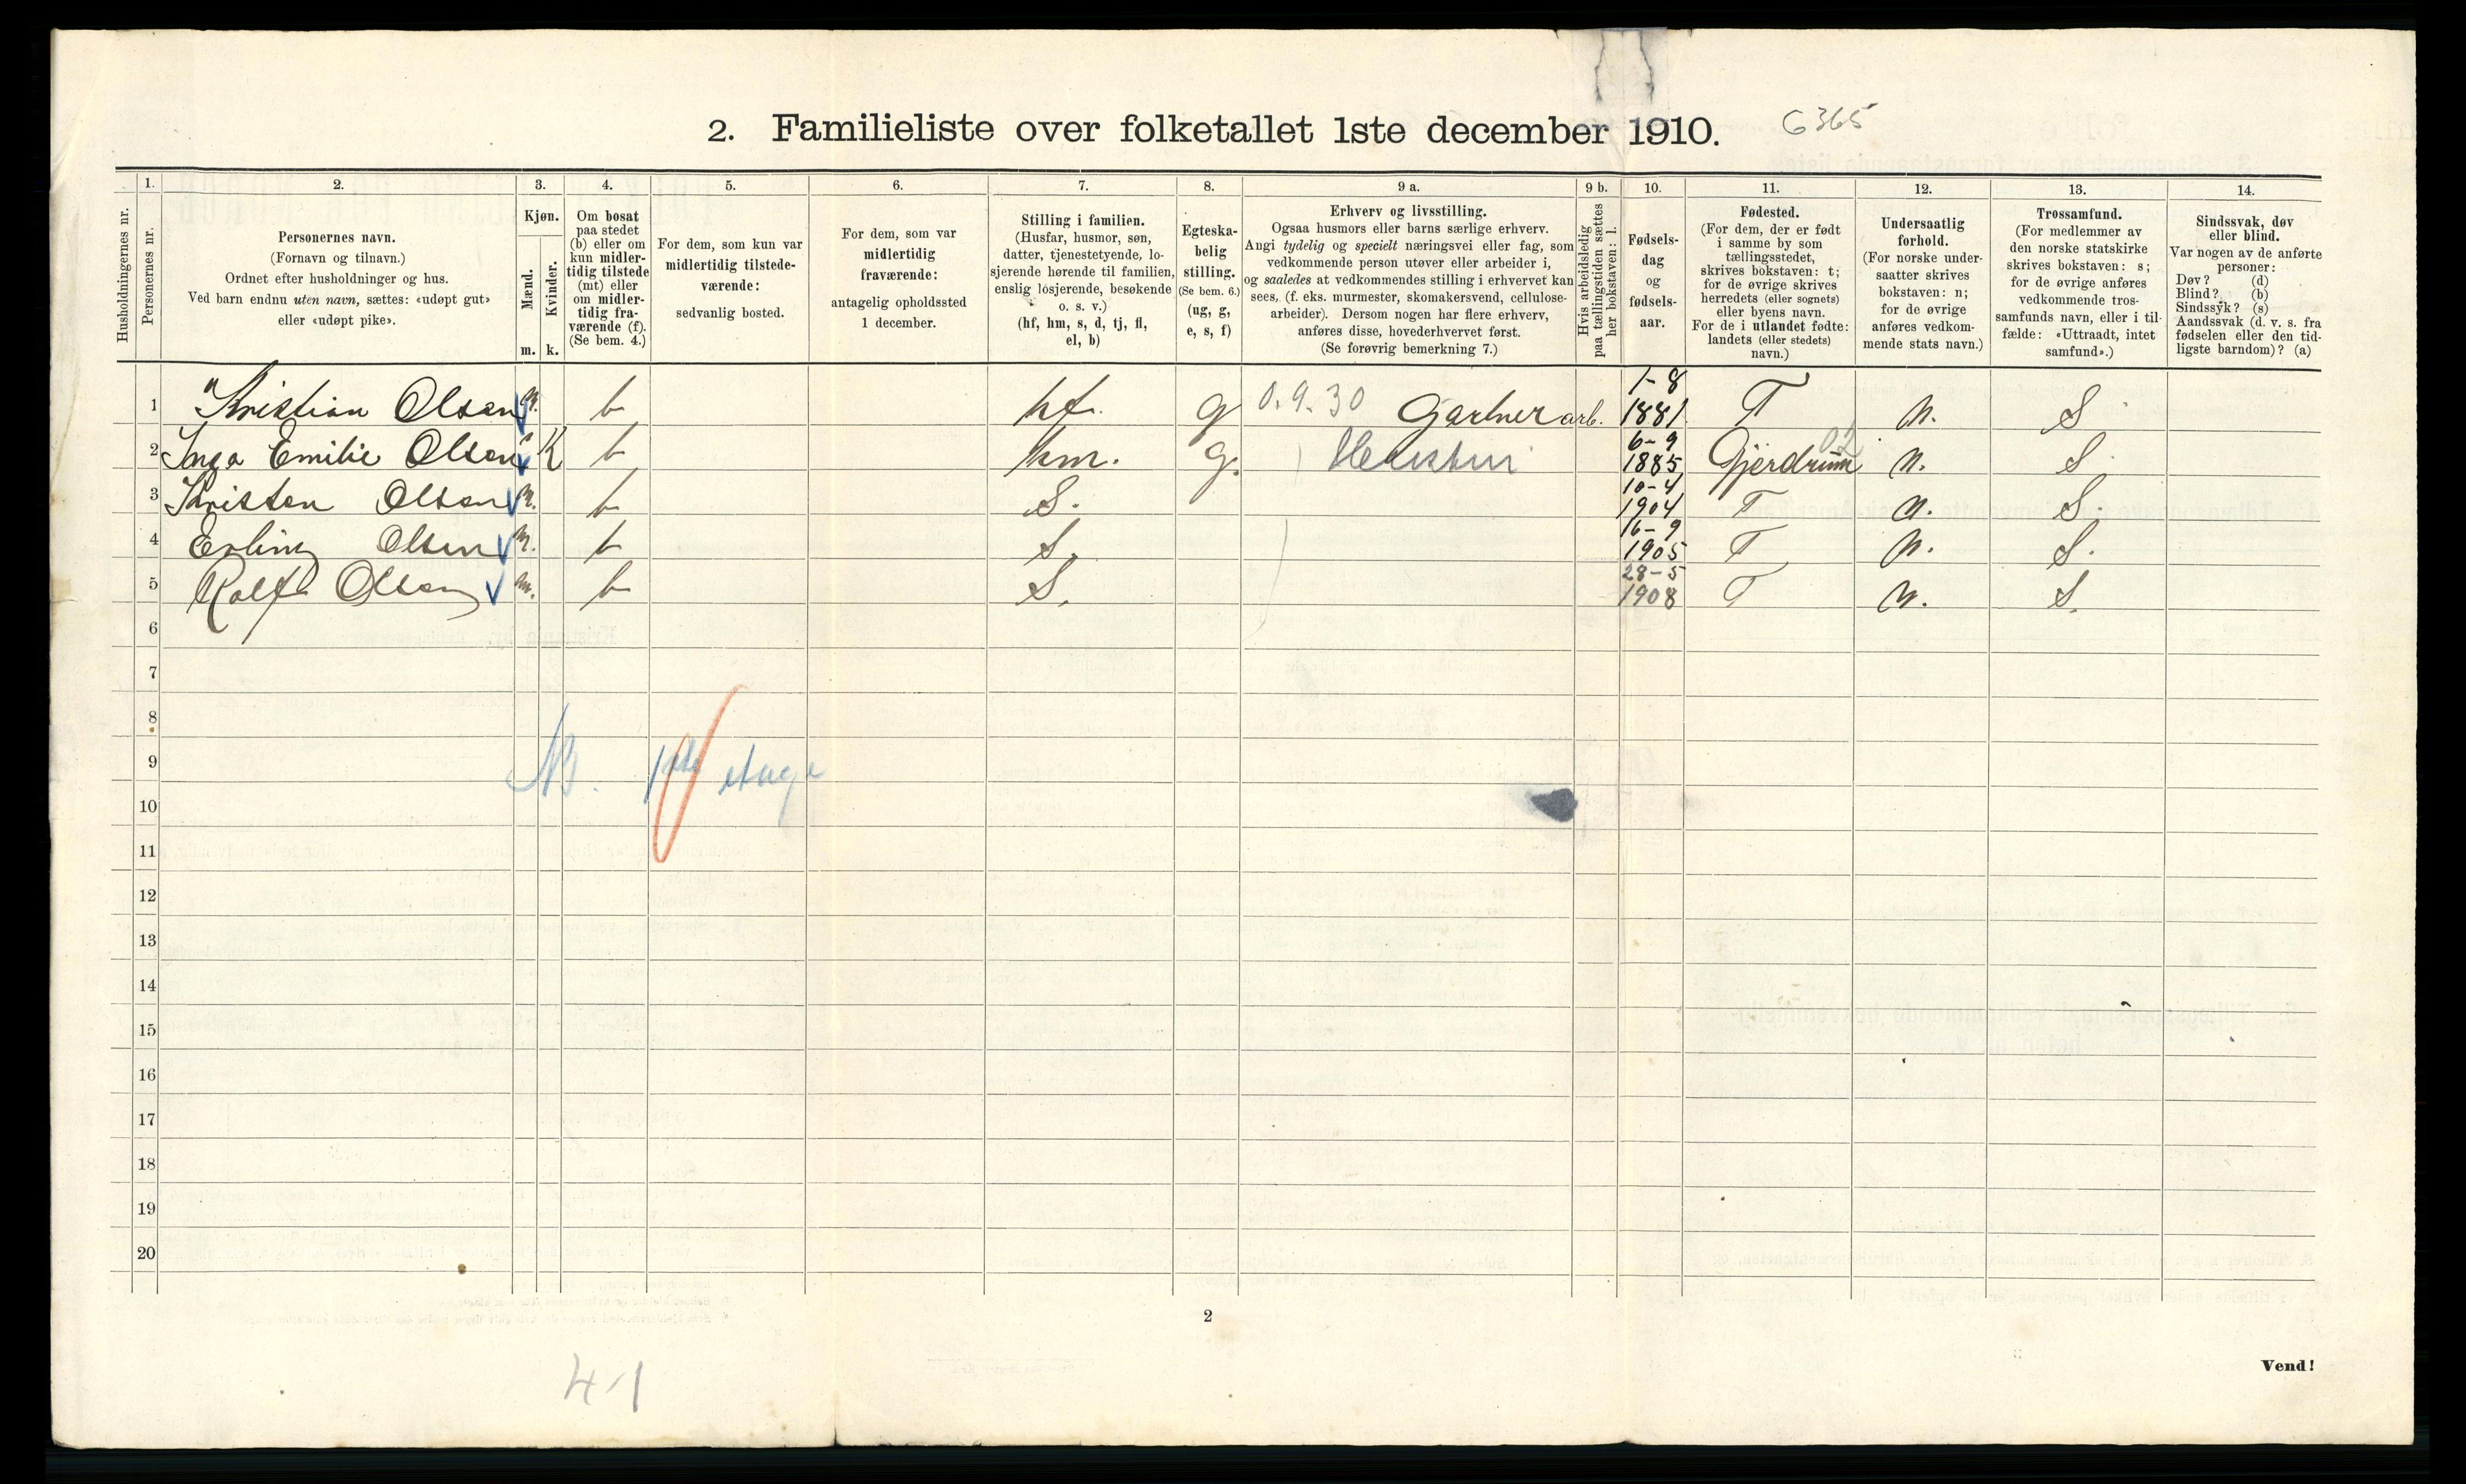 2. Familieliste over folketallet 1ste december 1910. 6365
Husholdningernes nr.
1. Personernes nr.
2. Personernes navn.
(Fornavn og tilnavn.)
Ordnet efter husholdninger og hus.
Ved barn endnu uten navn, sættes: «udøpt gut»
eller «udøpt pike».
3. Kjøn.
Mænd. m.
Kvinder. k.
4. Om bosat
paa stedet
(b) eller om
kun midler-
tidig tilstede
(mt) eller
om midler-
tidig fra-
værende (f).
(Se bem. 4.)
5. For dem, som kun var
midlertidig tilstede-
værende:
sedvanlig bosted.
6. For dem, som var
midlertidig
fraværende:
antagelig opholdssted
1 december.
7. Stilling i familien.
(Husfar, husmor, søn,
datter, tjenestetyende, lo-
sjerende hørende til familien,
enslig losjerende, besøkende
o. s. v.)
(hf, hm, s, d, tj, fl,
el, b)
8. Egteska-
belig
stilling.
(Se bem. 6.)
(ug, g,
e, s, f)
9 a. Erhverv og livsstilling.
Ogsaa husmors eller barns særlige erhverv.
Angi tydelig og specielt næringsvei eller fag, som
vedkommende person utøver eller arbeider i,
og saaledes at vedkommendes stilling i erhvervet kan
sees, (f. eks. murmester, skomakersvend, cellulose-
arbeider). Dersom nogen har flere erhverv,
anføres disse, hovederhvervet først.
(Se forøvrig bemerkning 7.)
9 b. Hvis arbeidsledig
paa tællingstiden sættes
her bokstaven: l.
10. Fødsels-
dag
og
fødsels-
aar.
11. Fødested.
(For dem, der er født
i samme by som
tællingsstedet,
skrives bokstaven: t;
for de øvrige skrives
herredets (eller sognets)
eller byens navn.
For de i utlandet fødte:
landets (eller stedets)
navn.)
12. Undersaatlig
forhold.
(For norske under-
saatter skrives
bokstaven: n;
for de øvrige
anføres vedkom-
mende stats navn.)
13. Trossamfund.
(For medlemmer av
den norske statskirke
skrives bokstaven: s;
for de øvrige anføres
vedkommende tros-
samfunds navn, eller i til-
fælde: «Uttraadt, intet
samfund».)
14. Sindssvak, døv
eller blind.
Var nogen av de anførte
personer:
Døv? (d)
Blind? (b)
Sindssyk? (s)
Aandssvak (d. v. s. fra
fødselen eller den tid-
ligste barndom)? (a)
1 Kristian Olsen m. b hf. g 0.9.30 Gartner arb. 1-8 1881 T n. S
2 Inga Emilie Olsen K b hm. g. 6-9 1885 Gjerdrum 02 n. S
3 Kristen Olsen m. b S. 10-4 1904 T n. S.
4 Erling Olsen m. b S. 16-9 1905 T n. S.
5 Rolf Olsen m. b S. 28-5 1908 T n. S.
6
7
8
9 NB. 1ste etage
10
11
12
13
14
15
16
17
18
19
20
2
Vend!
4-1